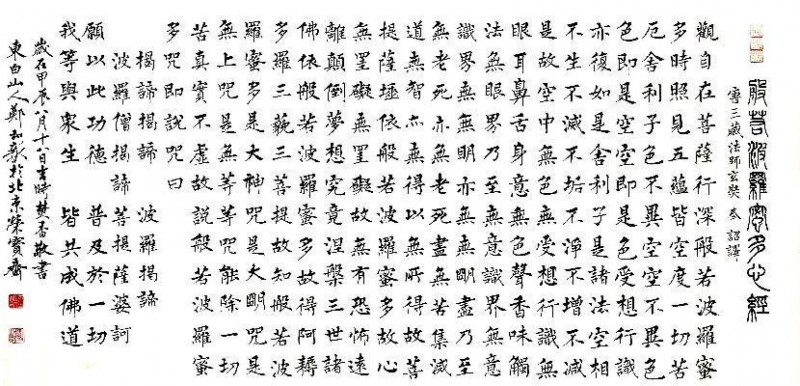 般若波羅蜜多心經
唐三藏法師玄奘 奉 詔譯
觀自在菩薩行深般若波羅蜜
多時照見五蘊皆空度一切苦
厄舍利子色不異空空不異色
色即是空空即是色受想行識
亦復如是舍利子是諸法空相
不生不滅不垢不淨不增不減
是故空中無色無受想行識無
眼耳鼻舌身意無色聲香味觸
法無眼界乃至無意識界無意
識無無明亦無無明盡乃至
無老死亦無老死盡無苦集滅
道無智亦無得以無所得故菩
提薩埵依般若波羅蜜多故心
無罣礙無罣礙故無有恐怖遠
離顛倒夢想究竟涅槃三世諸
佛依般若波羅蜜多故得阿耨
多羅三藐三菩提故知般若波
羅蜜多是大神咒是大明咒是
無上咒是無等等咒能除一切
苦真實不虛故說般若波羅蜜
多咒即說咒曰
揭諦揭諦 波羅揭諦
波羅僧揭諦 菩提薩婆訶
願以此功德 普及於一切
我等與眾生 皆共成佛道
歲在甲辰八月十八日吉時焚香敬書
東白山人鄭和新於北京榮寶齋